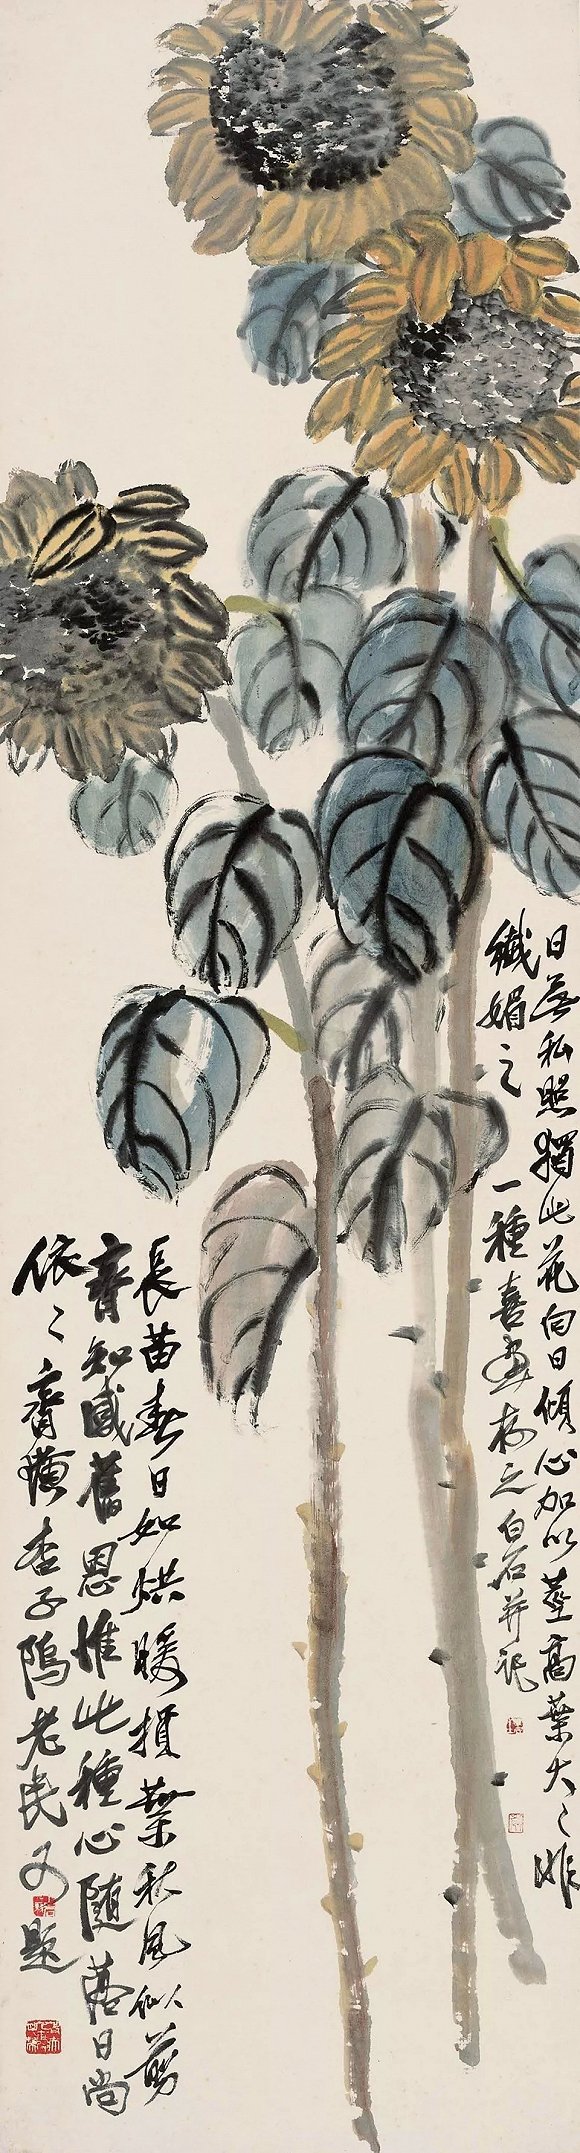 日無私照獨此花向日傾心加以莖高葉大大非
纖媚之一種喜画存之白石并記
長苗春日如烘暖損葉秋風似剪
齊知感舊恩惟此種心隨落日尚
依依齊璜杏子隖老民又題